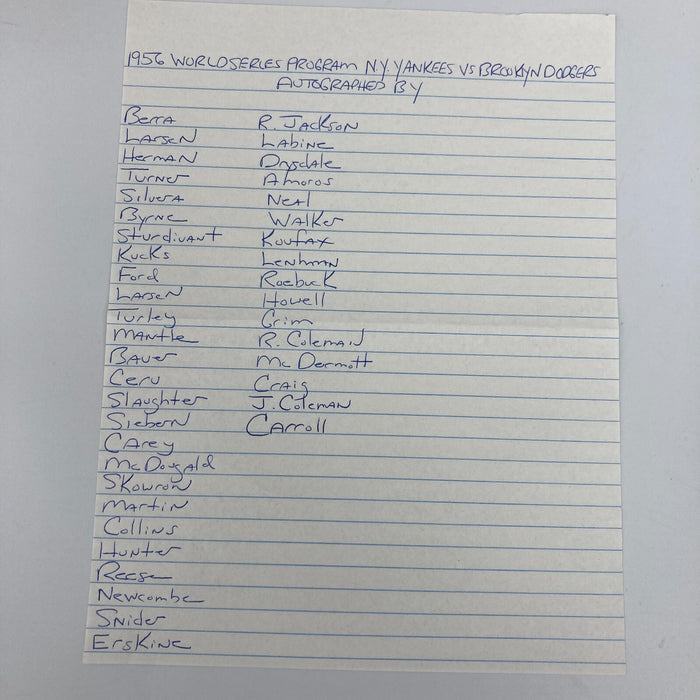 1956 WORLD SERIES PROGRAM NY YANKEES VS BROOKLYN DODGERS
AUTOGRAPHED BY
Berra
Larsen
Herman
Turner
Silvera
Byrne
Sturdivant
Kucks
Ford
Larsen
Turley
Mantle
Bauer
Cerv
Slaughter
Siebern
Carey
McDougald
Skowron
Martin
Collins
Hunter
Reese
Newcombe
Snider
Erskine
R. Jackson
Labine
Drysdale
Amoros
Neal
Walker
Koufax
Lenhman
Roebuck
Howell
Grim
R. Coleman
McDermott
Craig
J. Coleman
Carroll